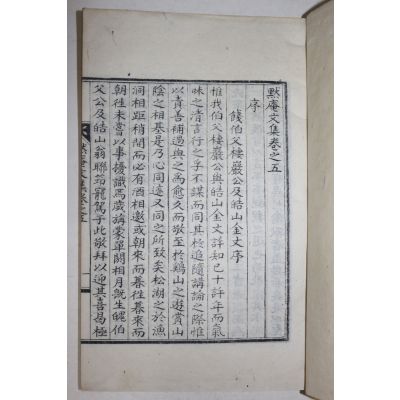 黙庵文集卷之五
序
餞伯父棲巖公及皓山金丈序
惟我伯父棲巖公與皓山金丈詳知已十許年而氣
味之清言行之孚不謀而同其於追隨講論之際惟
以責善補過與之爲愈久而敬至於鷄山之遊賞山
陰之相基是乃心同道又同之所致矣松湖之於漁
洞相距稍間而必有酒相邀或朝來而暮徃暮來而
朝徃未嘗以事擾識焉歲旃蒙單閼相月旣生魄伯
父公及皓山翁聯笻寵駕于此敬拜以迎其喜曷極